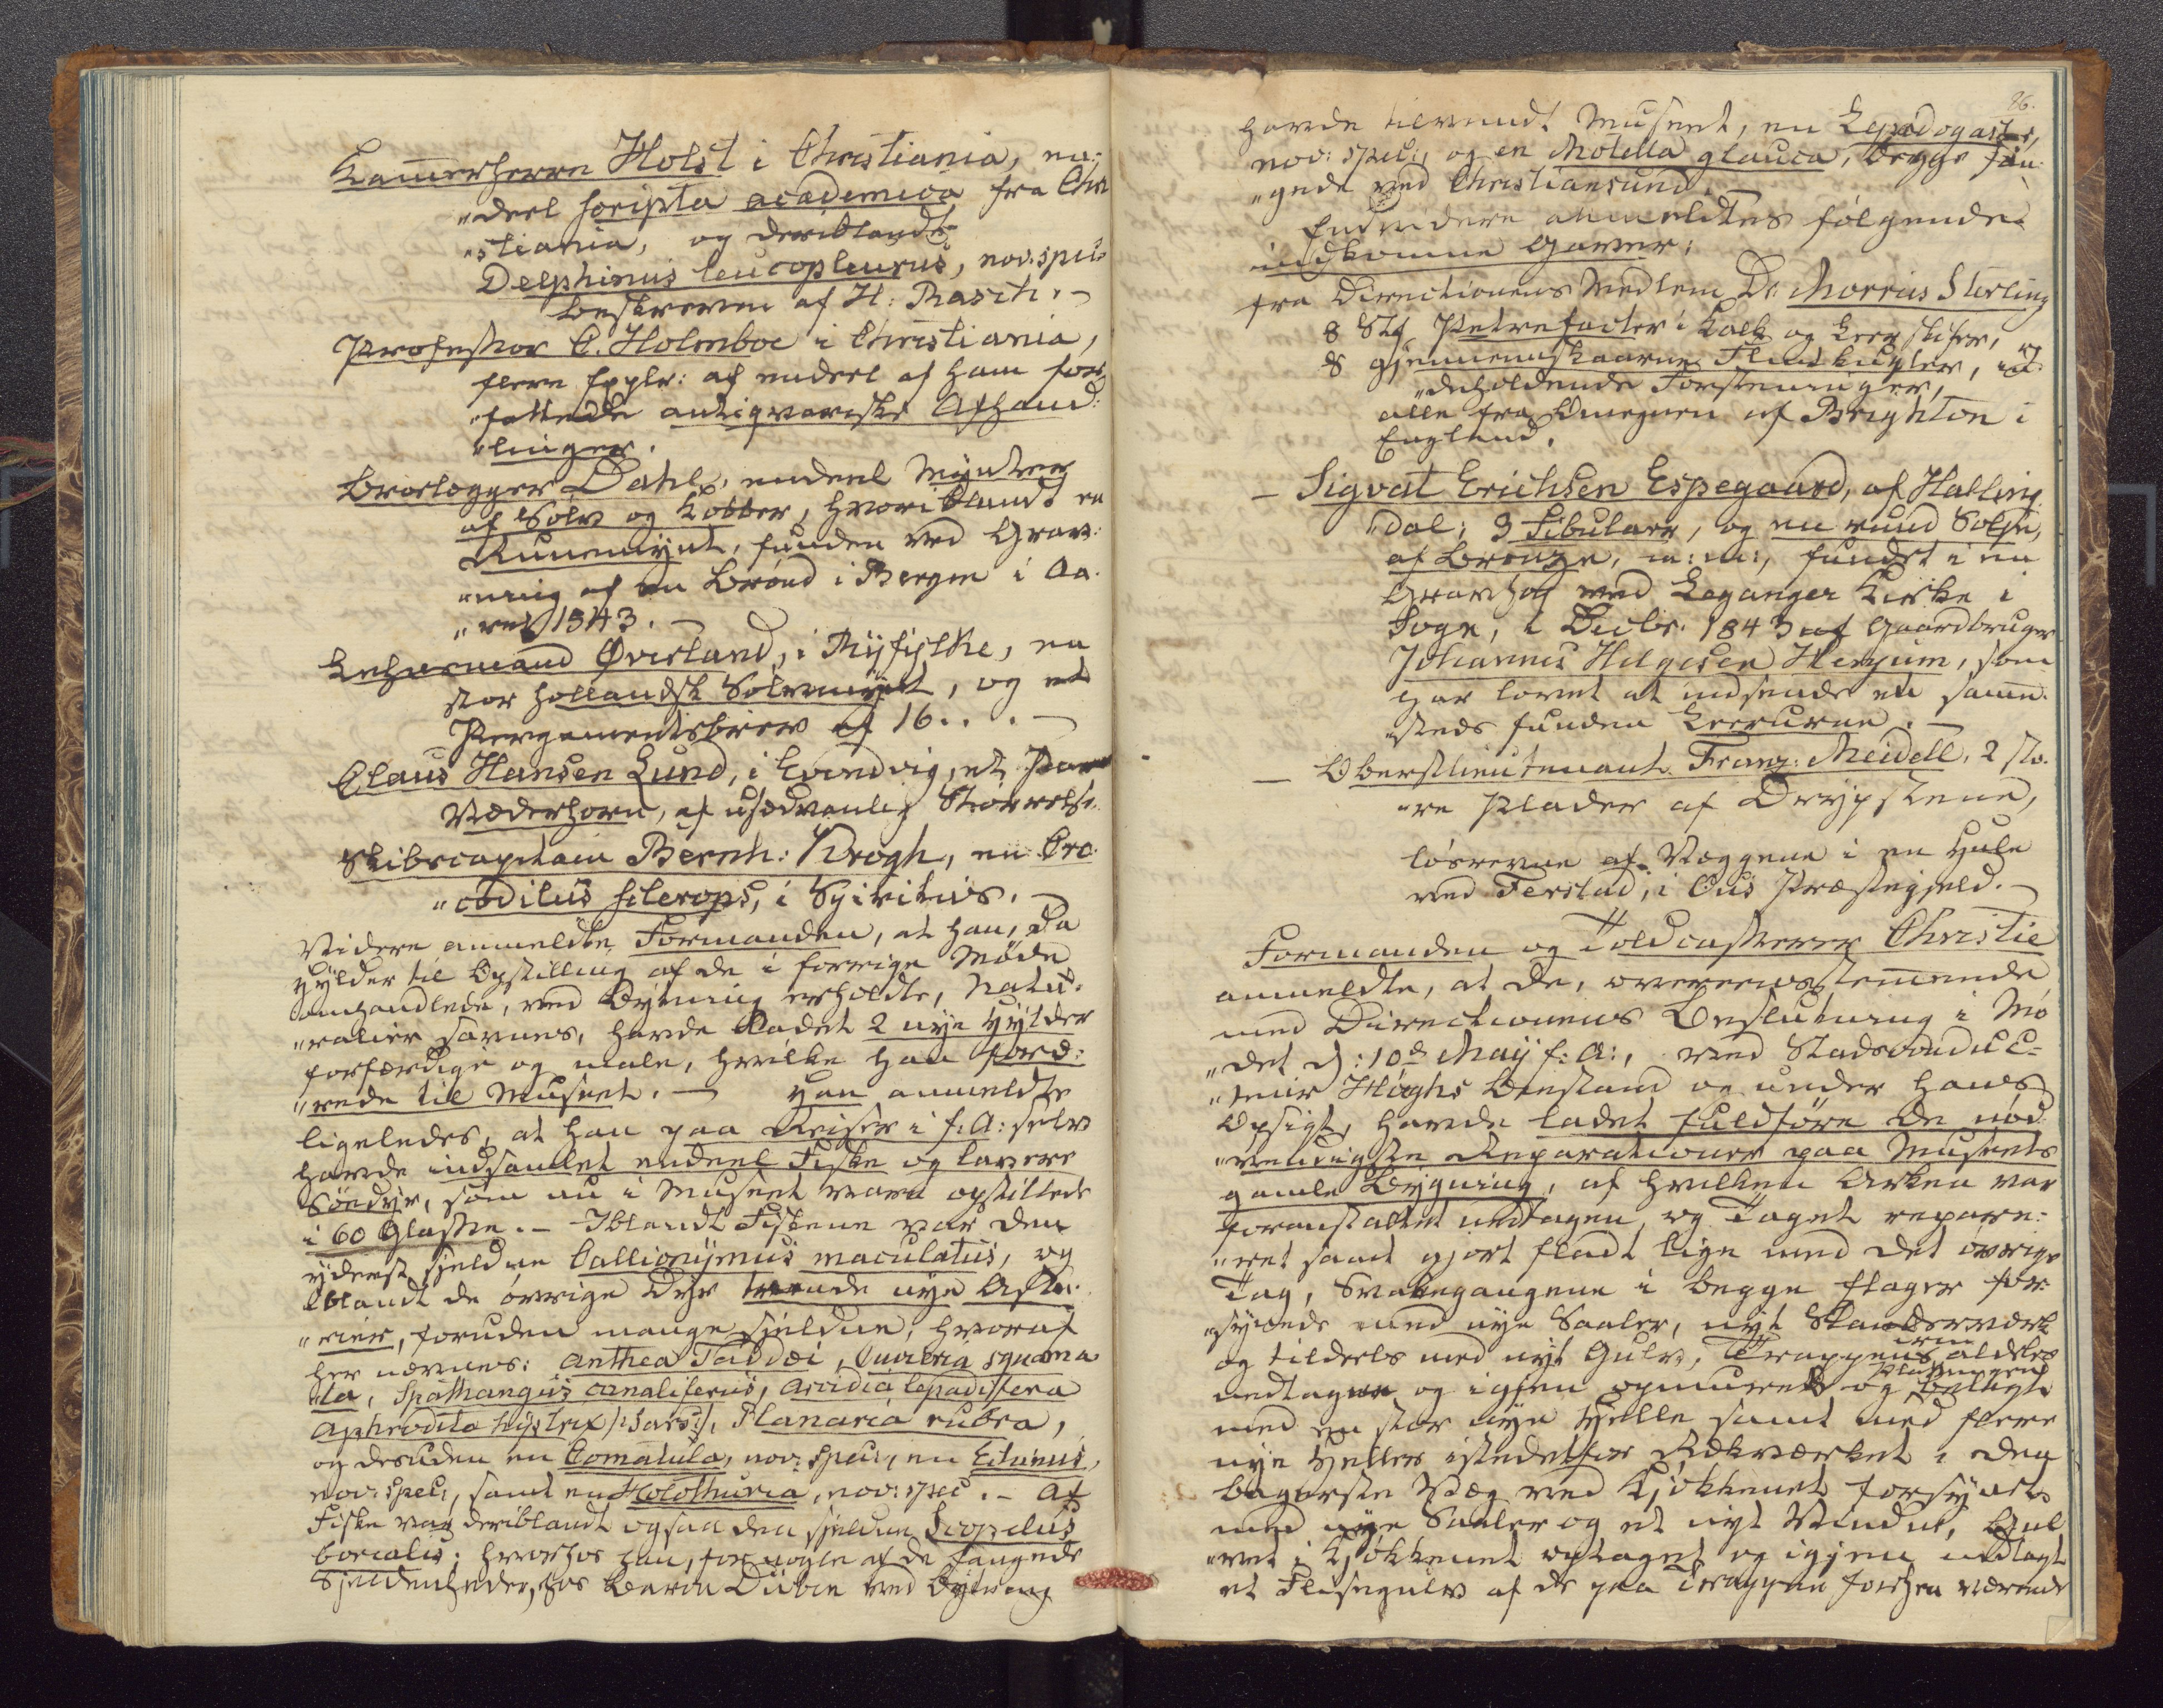 Kammerherre Holst i Christiania, en-
"deel scripta academica fra Chri
"stiania, og deriblandt
Delphinus leucopleurus, nov: spec:
beskreven af H: Rasch. -
Professor C. Holmboe i Christiania,
flere Expler: af endeel af ham for-
"fattede antiqvariske Afhand-
"linger.
Brolægger Dahl, endeel Mynter
af Sølv og Kobber, hvoriblandt en
Runemynt, funden ved Grav-
"ning af en Brønd i Bergen i Aa-
"ret 1843. -
Lehnsmand Øverland, i Ryfylke, en
stor hollandsk Sølvmynt, og et
Pergamentsbrev af 16... -
Claus Hansen Lund, i Evindvig, et Par
Væderhorn, af usædvanlig Størrelse.
Skibscapitain Bernh: Krogh, en Cro-
"codilus sclerops, i Spiritus. -
Videre anmeldte Formanden, at han, da
Hylder til Opstilling af de i forrige Møde
omhandlede, ved Bytning erholdte, Natu-
"ralier savnes, havde ladet 2 nye Hylder
forfærdige og male, hvilke han foræ-
"rede til Museet. - Han anmeldte
ligeledes, at han paa Reiser i f: A: selv
havde indsamlet endeel Fiske og lavere
Sødyr, som nu i Museet vare opstillede
i 60 Glasse. - Iblandt Fiskene var den
yderst sjeldne Callionymus maculatus, og
iblandt de øvrige Dyr trende nye Aste-
"rier, foruden mange sjeldne, hvoraf
her nævnes: Anthea Tuddæi, Cuvieria squama
"ta, Spathangus canaliferus, Ascidia lepadifera
Aphrodita hystrix /: Sars :/, Planaria rubra,
og desuden en Comatula, nov: spec:, en Echinus,
nov: spec:, samt en Holothuria, nov: spec. - Af
Fiske var deriblandt ogsaa den sjeldne Scopelus
borealis; hvorhos han, for nogle af de fangede
Sjeldenheder, hos Baron Düben ved Bytning
86.
havde tilvendt Museet, en Lepadogaster,
nov: spec:, og en Motella glauca, begge fan-
"gede ved Christiansund. -
Endvidere anmeldtes følgende
indkomne Gaver:
fra Directionens Medlem Dr: Morris Sterling
8 Stk. Petrefacter i Kalk og Leerskifer, og
8 gjennemskaarne Flintkugler, in-
"deholdende Forsteninger,
alle fra Omegnen af Brighton i
England.
- Sigvat Erichsen Espegaard, af Halling-
"dal; 3 Fibulaer, og en rund Sølje,
af Bronze, m: m:, fundet i en
Gravhøi ved Leganger Kirke i
Sogn, i Decbr. 1843 af Gaardbruger
Johannes Helgesen Henjum, som
har lovet at indsende en samme-
"steds funden Leerurne. -
- Oberstlieutenant Franz: Meidell, 2 sto-
"re Plader af Drypstene,
løsrevne af Væggene i en Hule
ved Ferstad, i Ous Præstegjeld. -
Formanden og Toldcasserer Christie
anmeldte, at de, overeensstemmende
med Directionens Beslutning i Mø
"det d: 10de May f: A:, ved Stadsconduc-
"teur Høghs Bistand og under hans
Opsigt, havde ladet fuldføre de nød-
"vendigste Reparationer paa Museets
gamle Bygning, af hvilken Arken var
foranstaltet nedtagen, og Taget repare-
"ret samt gjort fladt lige med det øvrige
Tag, Svalegangene i begge Etager for-
"synede med nye Saaler, nyt Standerværk
og tildeels med nyt Gulv, Trappens aldeles
nedtagne og igjen opmurede og Platningen belagt
med en stor nye Helle samt med flere
nye Heller istedetfor Rækværket i den
bagerste Væg ved Kjøkkenet forsynet
med nye Saaler og et nyt Vindue, Gul
"vet i Kjøkkenet optaget og igjen nedlagt
et Flisegulv af de paa Trappen forhen værende